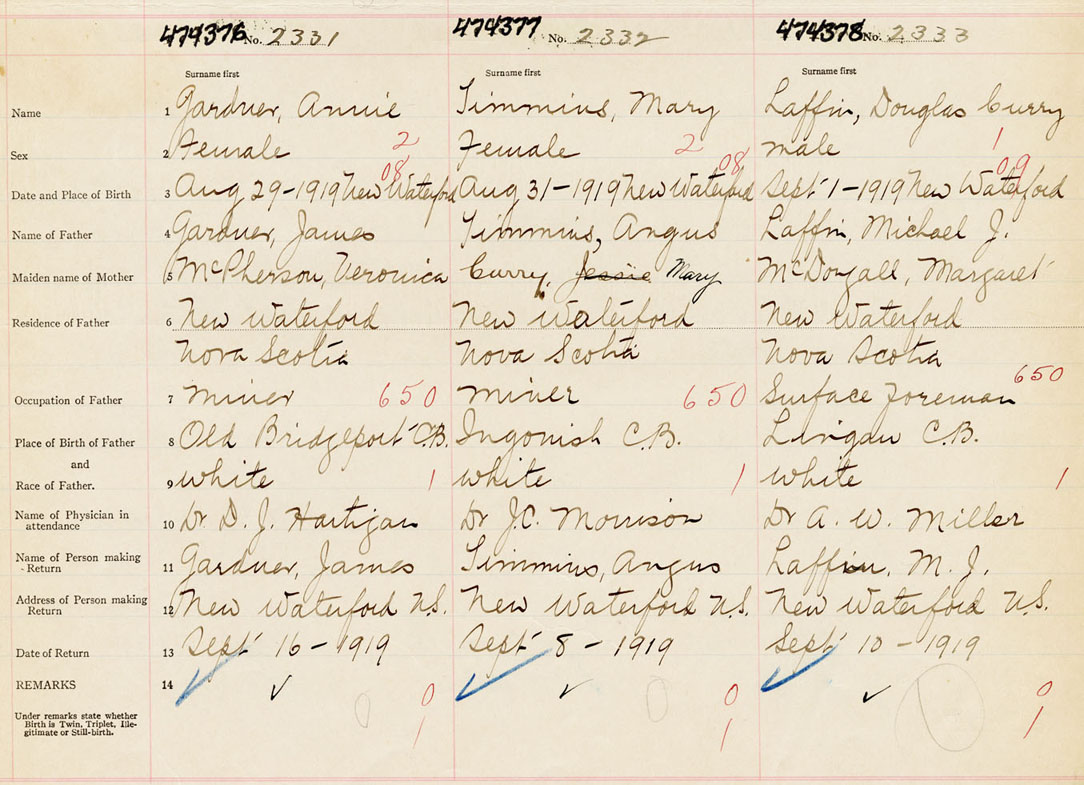 474376 No. 2331 474377 No. 2332 474378 No. 2333
Surname first Surname first Surname first
Name 1 Gardner, Annie Timmins, Mary Laffin, Douglas Curry
Sex 2 Female 2 Female 2 male 1
08 08 09
Date and Place of Birth 3 Aug 29-1919 New Waterford Aug 31-1919 New Waterford Sept 1-1919 New Waterford
Name of Father 4 Gardner, James Timmins, Angus Laffin, Michael J.
Maiden name of Mother 5 McPherson, Veronica Curry, Jessie Mary McDougall, Margaret
Residence of Father 6 New Waterford New Waterford New Waterford
Nova Scotia Nova Scotia Nova Scotia
Occupation of Father 7 Miner 650 Miner 650 Surface Foreman 650
Place of Birth of Father 8 Old Bridgeport C.B. Ingonish C.B. Lingan C.B.
and
Race of Father. 9 white 1 white 1 white 1
Name of Physician in attendance 10 Dr D. J. Hartigan Dr J.C. Morrison Dr A. W. Miller
Name of Person making Return 11 Gardner, James Timmins, Angus Laffin, M. J.
Address of Person making Return 12 New Waterford N.S. New Waterford N.S. New Waterford N.S.
Date of Return 13 Sept 16-1919 Sept 8-1919 Sept 10-1919
REMARKS 14 ✓ ✓ 0 ✓ ✓ 0 ✓ ✓ 0
Under remarks state whether
Birth is Twin, Triplet, Ille-
gitimate or Still-birth.
0 1 0 1 0 1